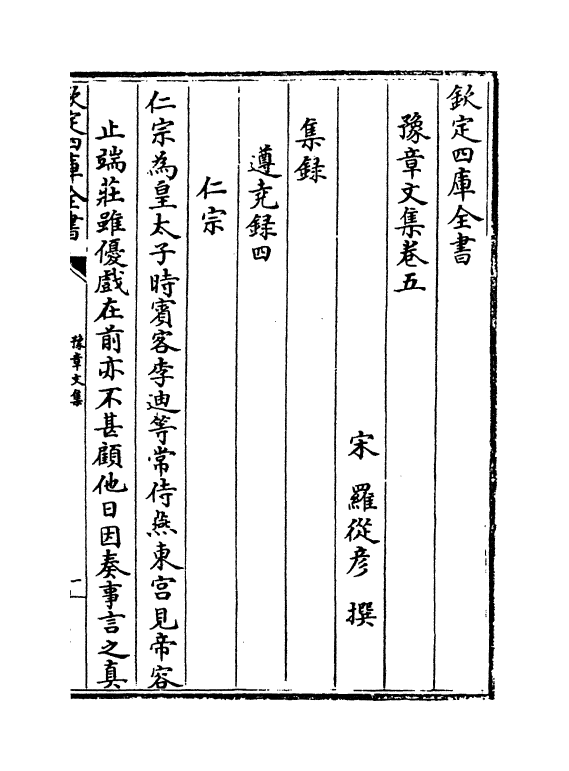 欽定四庫全書
豫章文集卷五
宋　羅從彦　撰
集録
遵堯録四
仁宗
仁宗為皇太子時賓客李迪等常侍燕東宫見帝容
止端莊雖優戲在前亦不甚顧他日因奏事言之真
欽定四庫全書
豫章文集
一